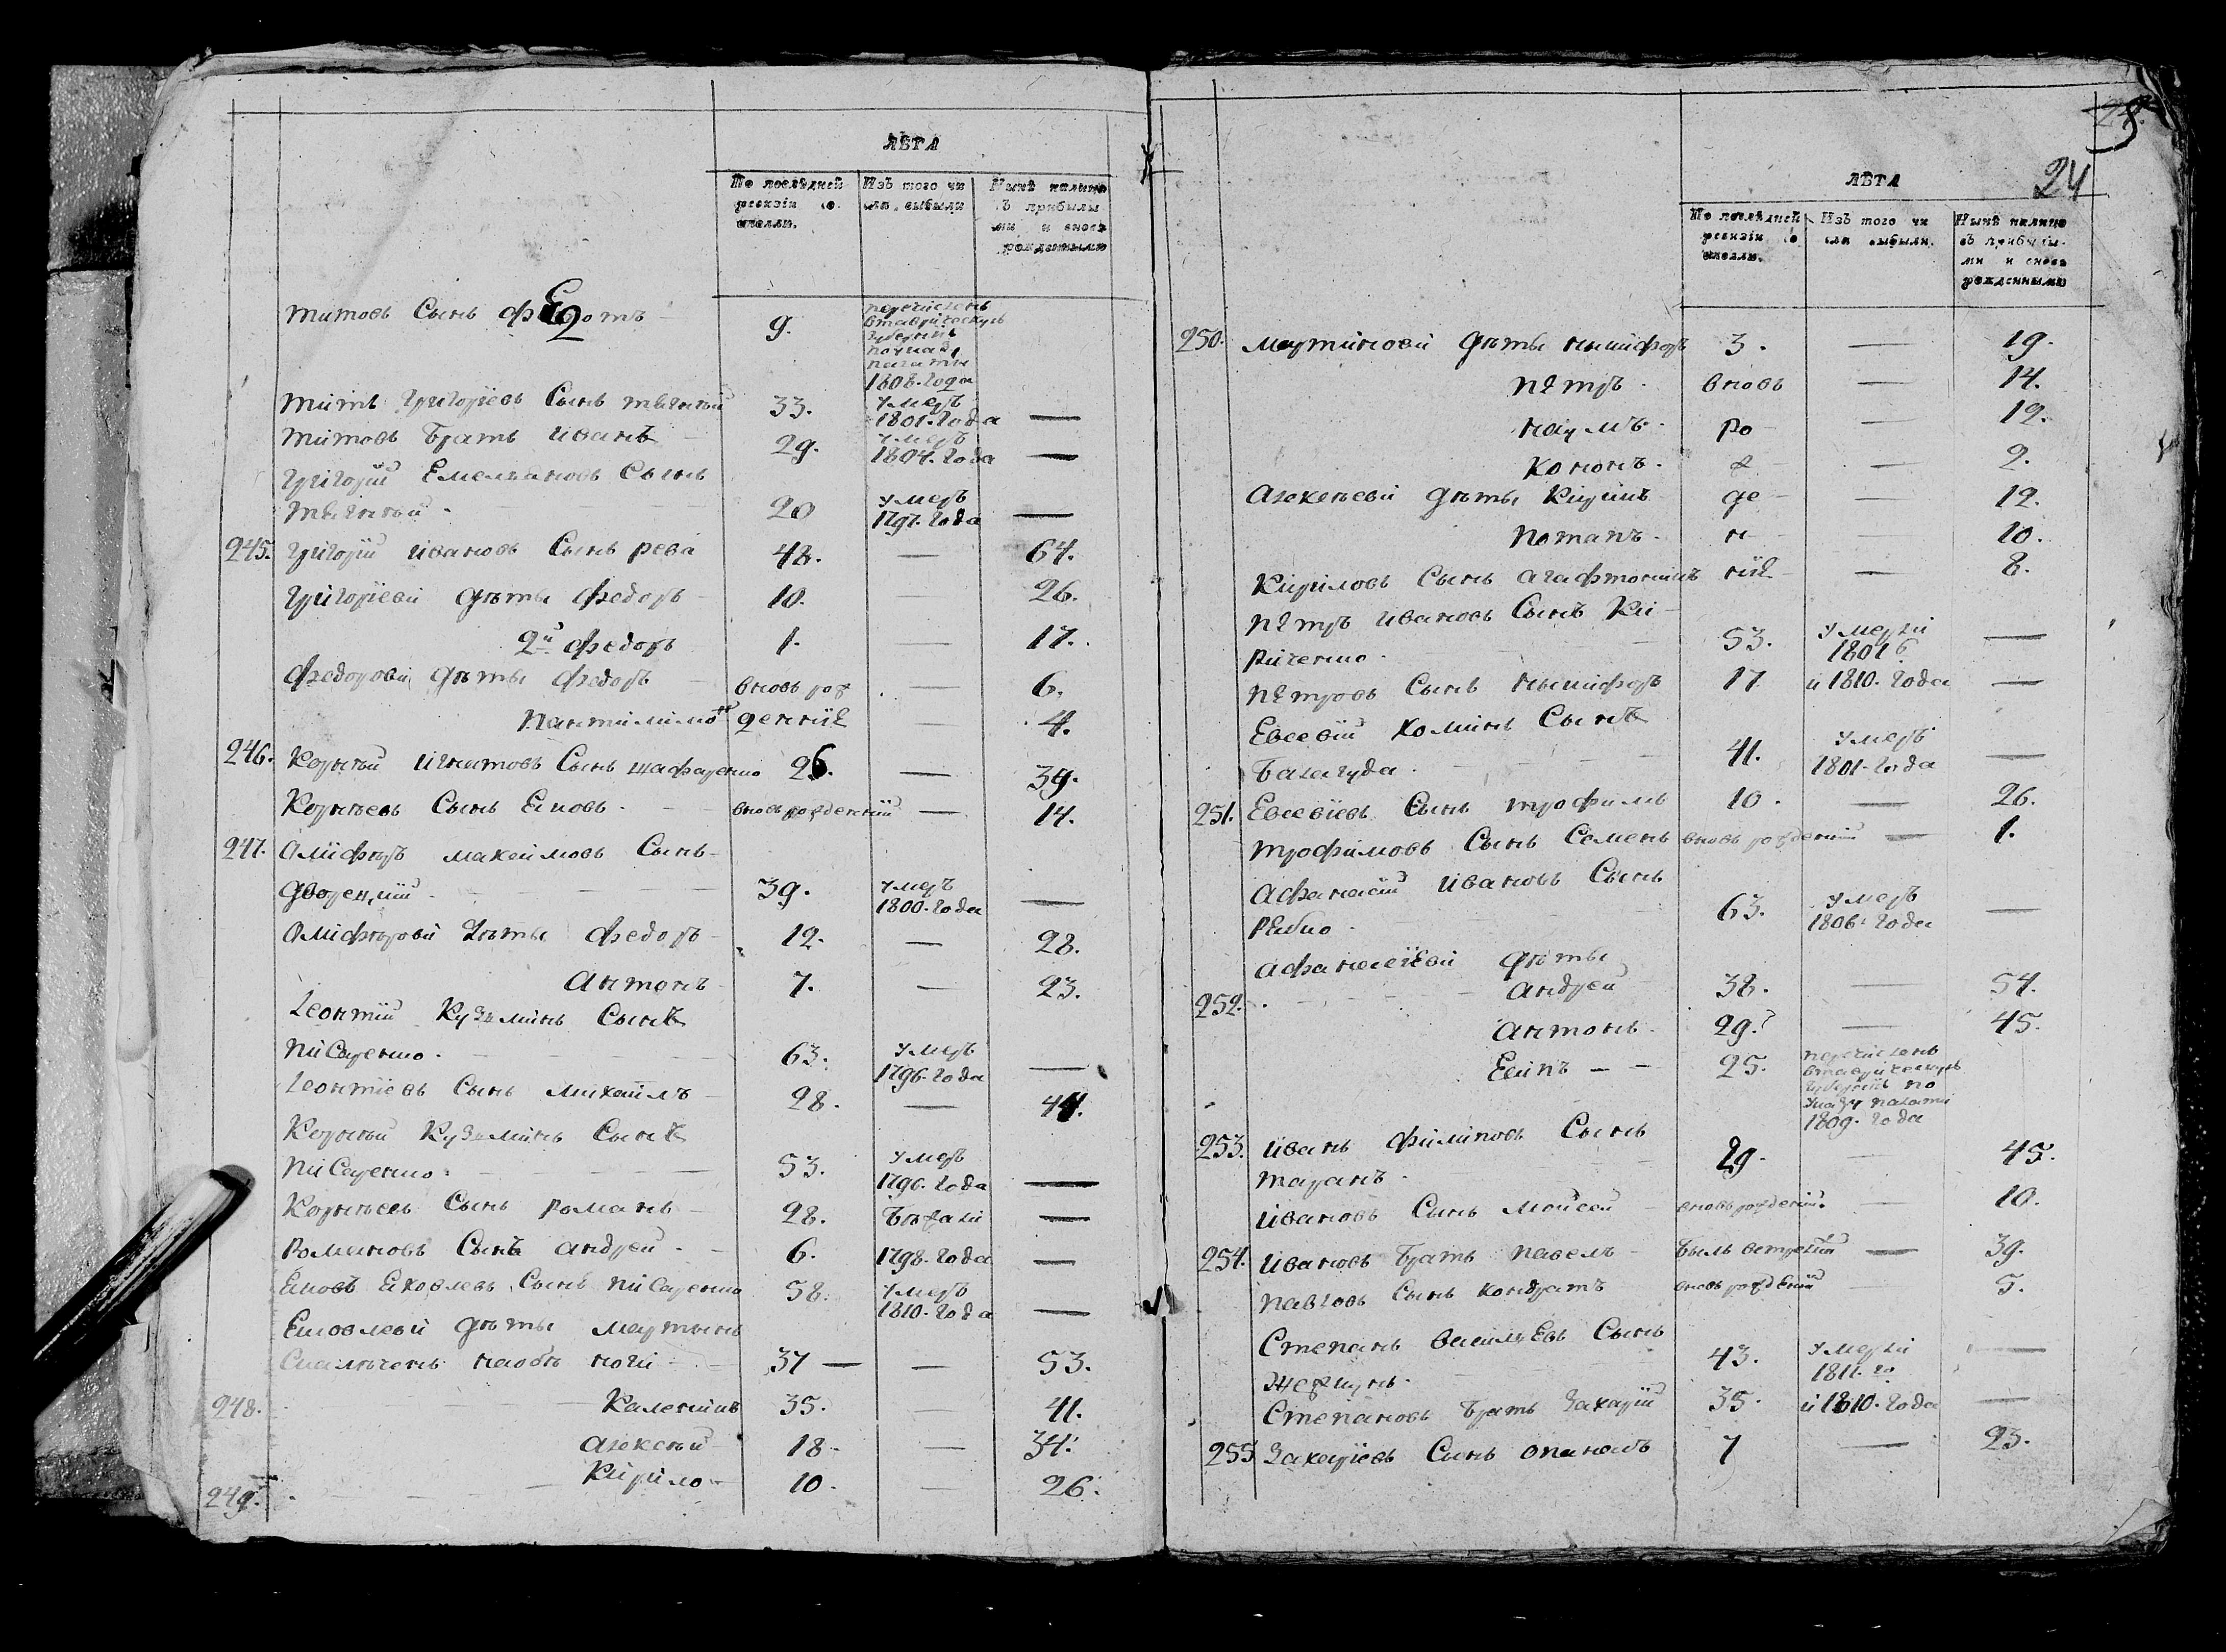 ЛѢТА
По послѣдней ревизіи со стояли.
Изъ того чи сла выбыли
Нынѣ налицо съ прибылы ми и вновь рожденными
титовъ Сынъ федотъ 9. перечисленъ
втаврическую
губернію
1808. года
титъ григорїевъ Сынъ 33. умеръ 1801. года —
титовъ братъ иванъ 29. умеръ 1804. года —
григорїй Емельяновъ Сынъ
20 умеръ 1797. года —
245. григорїй ивановъ Сынъ рева 48. — 64.
григорїеви дѣти федоръ 10. 26.
2й федоръ 1. — 17.
федорови дѣти федоръ вновь рож — 6.
пантилимонъ денніе — 4.
246. Корнѣй игнатовъ Сынъ 26. — 39.
Корнѣевъ Сынъ Еиовъ вновь рожденний — 14.
247. Олифѣръ максимовъ Сынъ
39. умеръ 1800. года —
Олифѣрови дѣти федоръ 12. — 28.
антонъ 7. — 23.
Леонтїй Кузьминъ Сынъ
писаренко 63. умеръ 1796. года —
Леонтїевъ Сынъ михаилъ 28. — 44.
Корнѣй Кузьминъ Сынъ
писаренко 53. умеръ 1796. года —
Корнѣевъ Сынъ романъ 28. бѣжали —
Романовъ Сынъ андрей 6. 1798. года —
Еиовъ Яковлевъ Сынъ писаренко 58. умеръ 1810. года —
дѣти мартинъ
наобѣ ноги 37 — — 53.
248. Каленикъ 35. 41.
алексѣй 18 — 34.
249. Кирило 10 — 26.
24
ЛѢТА
По послѣдней ревизіи со стояли.
Изъ того чи сла выбыли.
Нынѣ налицо съ прибылы ми и вновь рожденными
250. мартинови дѣти никифоръ 3. — 19.
пѣтръ вновь — 14.
наумъ ро — 12.
кононъ ж — 2.
алексѣеви дѣти Кирикъ де 12.
потапъ н — 10.
Кириловъ Сынъ агафтонникъ ніе — 8.
пѣтръ ивановъ Сынъ Ки
риченко 53. умерли 1801 —
пѣтровъ Сынъ никифоръ 17 и 1810. года —
Евсевїй хоминъ Сынъ
балагуда 41. умеръ 1801. года —
251. Евсевїевъ Сынъ трофимъ 10. — 26.
трофимовъ Сынъ Семенъ вновь рожденний — 1.
афанасїй ивановъ Сынъ
63. умеръ 1806. года —
афанасїеви дѣти
252. андрей 38. — 54.
антонъ 29. — 45.
Есипъ 25. перечисленъ
втаврическую
губернію по
указу палати
1809. года
253. иванъ филиповъ Сынъ
таранъ 29. — 45.
ивановъ Сынъ мойсей вновь рожденний — 10.
254. ивановъ братъ павелъ — 39.
павловъ Сынъ кондратъ вновь рожденний 5.
Степанъ васильЕвъ Сынъ
43. умерли 1811. го —
Степановъ братъ Захарїй 35. и 1810. года —
255 Захарїевъ Сынъ опанасъ 7 — 23.